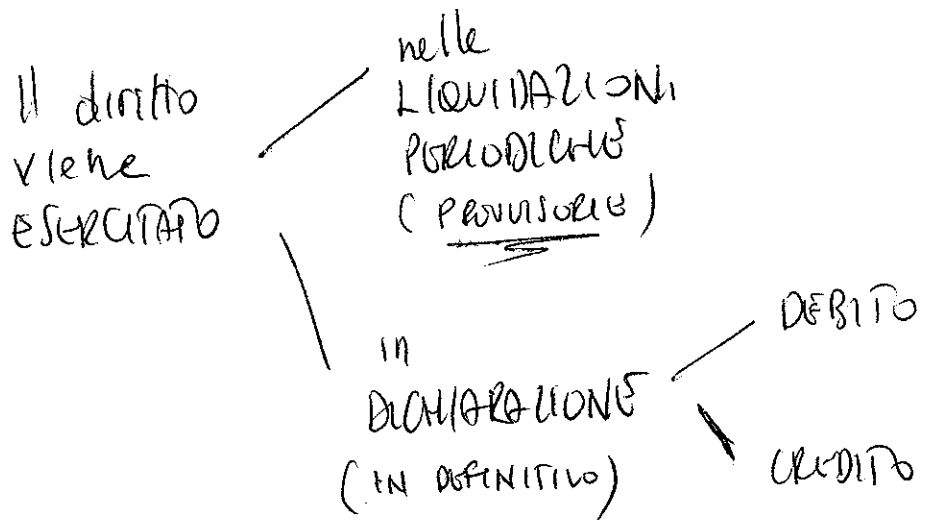 Il diritto
viene
ESERCITATO
nelle
LIQUIDAZIONI
PERIODICHE
(PROVVISORIE)
in
DICHIARAZIONE
(IN DEFINITIVO)
DEBITO
CREDITO